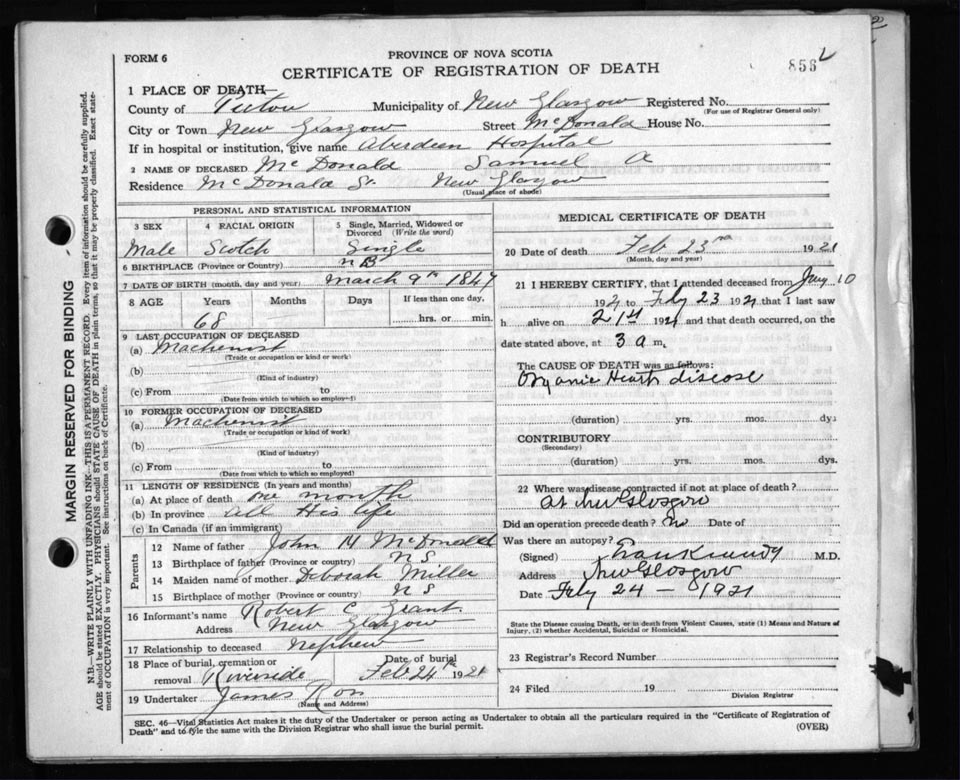 FORM 6
PROVINCE OF NOVA SCOTIA
CERTIFICATE OF REGISTRATION OF DEATH
856
1 PLACE OF DEATH—
County of Pictou Municipality of New Glasgow Registered No.
(For use of Registrar General only)
City or Town New Glasgow Street McDonald House No.
If in hospital or institution, give name Aberdeen Hospital
2 NAME OF DECEASED McDonald Samuel A
Residence McDonald St. New Glasgow
(Usual place of abode)
PERSONAL AND STATISTICAL INFORMATION
3 SEX 4 RACIAL ORIGIN 5 Single, Married, Widowed or Divorced (Write the word)
Male Scotch Single
6 BIRTHPLACE (Province or Country) NB
7 DATE OF BIRTH (month, day and year) March 9th 1847
8 AGE Years Months Days If less than one day,
68 hrs. or min.
9 LAST OCCUPATION OF DECEASED
(a) Machenist
(Trade or occupation or kind or work)
(b)
(Kind of industry)
(c) From to
(Date from which to which so employed)
10 FORMER OCCUPATION OF DECEASED
(a) Machenist
(Trade or occupation or kind of work)
(b)
(Kind of industry)
(c) From to
(Date from which to which so employed)
11 LENGTH OF RESIDENCE (In years and months)
(a) At place of death one month
(b) In province all His life
(c) In Canada (if an immigrant)
Parents
12 Name of father John H McDonald
13 Birthplace of father (Province or country) NS
14 Maiden name of mother Deborah Miller
15 Birthplace of mother (Province or country) NS
16 Informant's name Robert C Grant
Address New Glasgow
17 Relationship to deceased Nephew
18 Place of burial, cremation or removal Riverside Date of burial Feb 24th 1921
19 Undertaker James Ross
(Name and Address)
MEDICAL CERTIFICATE OF DEATH
20 Date of death Feb 23rd 1921
(Month, day and year)
21 I HEREBY CERTIFY, that I attended deceased from Jany 10
1921 to Feby 23 1921 that I last saw
h alive on 21st 1921 and that death occurred, on the
date stated above, at 3 a m.
The CAUSE OF DEATH was as follows:
Organic Heart disease
(duration) yrs. mos. dys.
CONTRIBUTORY
(Secondary)
(duration) yrs. mos. dys.
22 Where was disease contracted if not at place of death?
at New Glasgow
Did an operation precede death? No Date of
Was there an autopsy?
(Signed) M.D.
Address New Glasgow
Date Feby 24 – 1921
State the Disease causing Death, or in death from Violent Causes, state (1) Means and Nature of
Injury, (2) whether Accidental, Suicidal or Homicidal.
23 Registrar's Record Number
24 Filed 19
Division Registrar
SEC. 46—Vital Statistics Act makes it the duty of the Undertaker or person acting as Undertaker to obtain all the particulars required in the "Certificate of Registration of
Death" and to file the same with the Division Registrar who shall issue the burial permit.
(OVER)
MARGIN RESERVED FOR BINDING
N.B.—WRITE PLAINLY WITH UNFADING INK—THIS IS A PERMANENT RECORD. Every item of information should be carefully supplied.
AGE should be stated EXACTLY. PHYSICIANS should STATE CAUSE OF DEATH in plain terms, so that it may be properly classified. Exact state-
ment of OCCUPATION is very important. See instructions on back of Certificate.